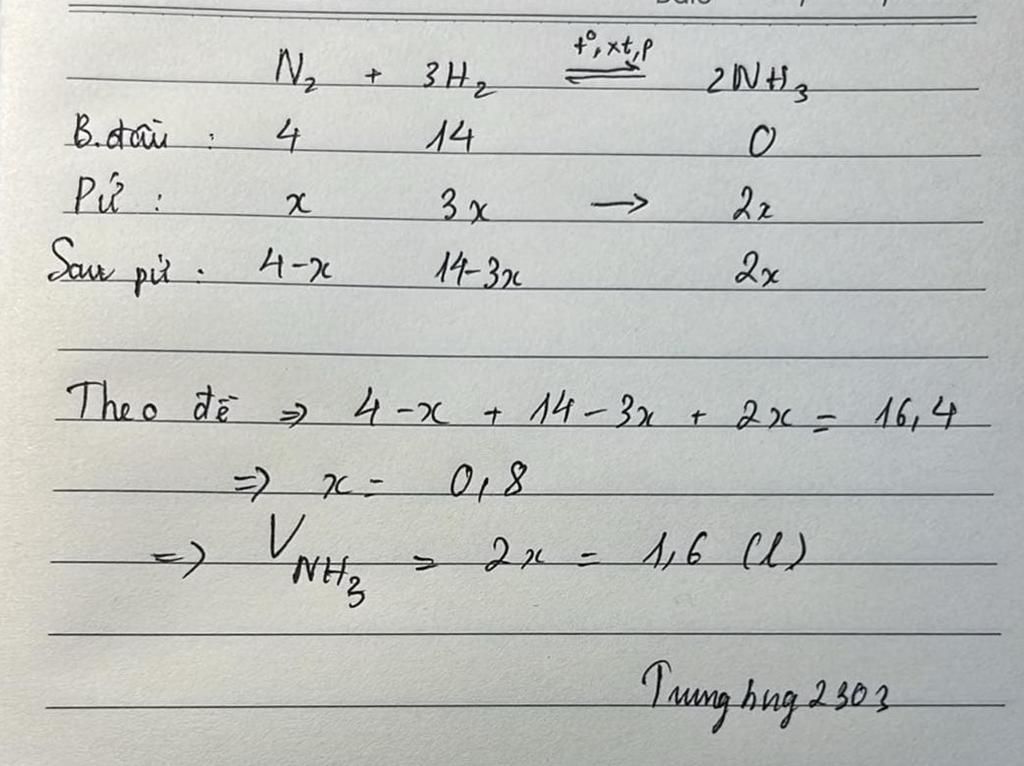 N₂ + 3H₂ ⇌ 2NH₃
t°, xt, p
B.đầu : 4 14 0
Pứ : x 3x → 2x
Sau pứ : 4-x 14-3x 2x
Theo đề ⇒ 4-x + 14-3x + 2x = 16,4
⇒ x = 0,8
⇒ V_NH₃ = 2x = 1,6 (l)
Trunghug2303